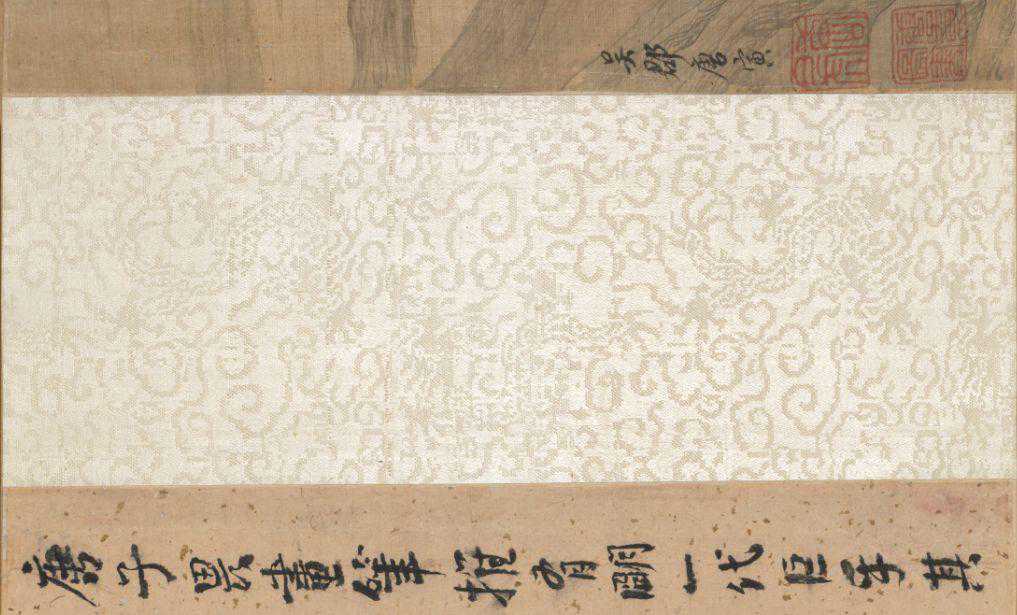 吳郡唐寅
唐子畏畫筆推有明一代巨手其